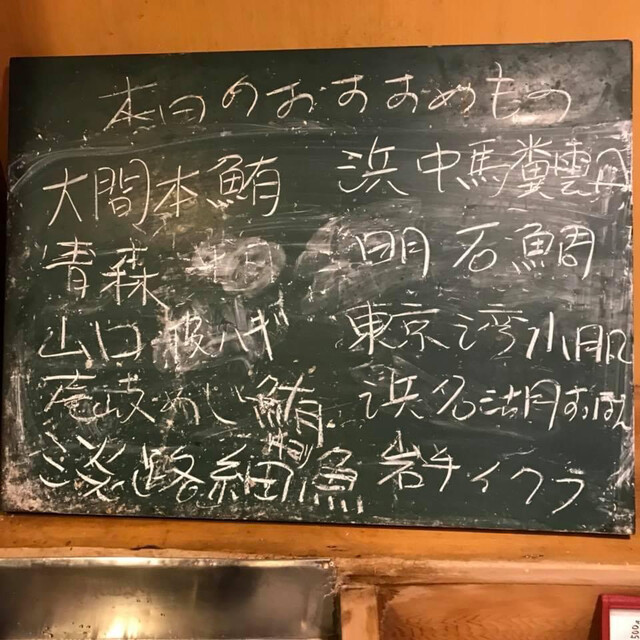 本日のおすすめもの
大間本鮪 浜中馬糞雲丹
青森 明石鯛
山口 ハギ 東京湾小肌
壱岐めじ鮪 浜名湖月すっぽん
淡路細魚 岩手イクラ